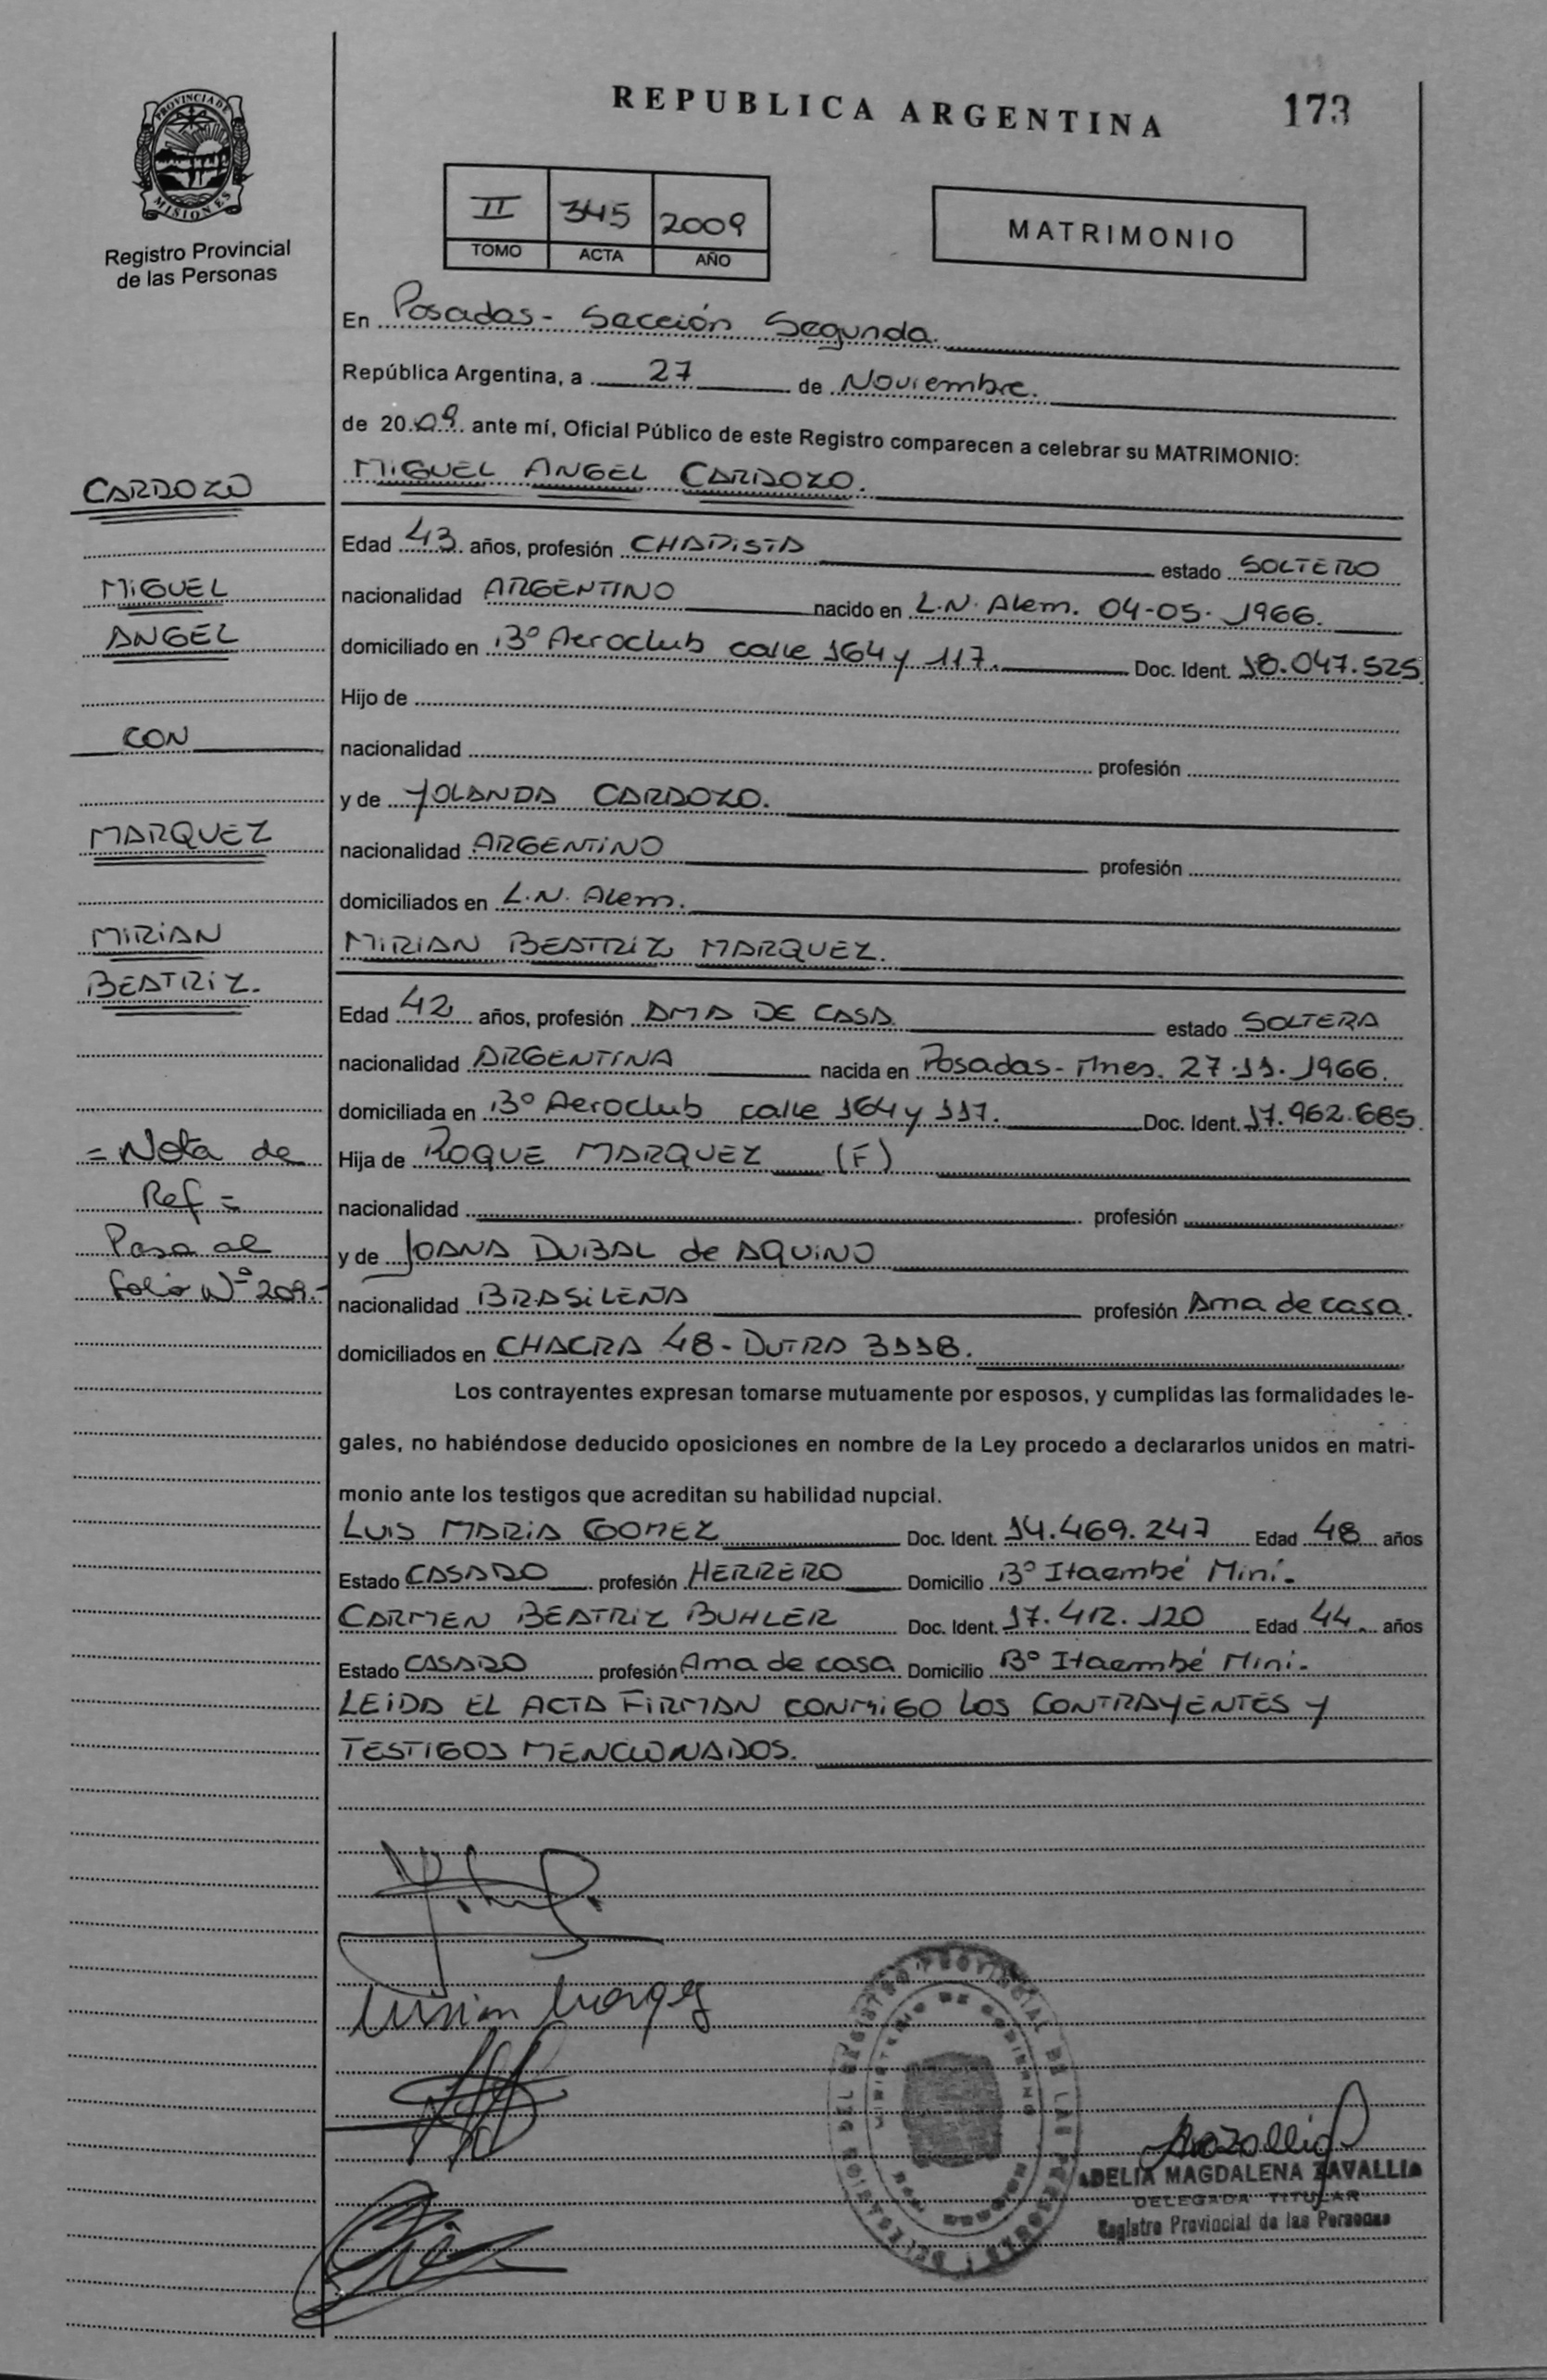 REPUBLICA ARGENTINA 173
PROVINCIA DE MISIONES
Registro Provincial
de las Personas
II 345 2009
TOMO ACTA AÑO
MATRIMONIO
En Posadas- Sección Segunda.
República Argentina, a 27 de Noviembre.
de 2009 ante mí, Oficial Público de este Registro comparecen a celebrar su MATRIMONIO:
MIGUEL ANGEL CARDOZO.
Edad 43 años, profesión CHAPISTA estado SOLTERO
nacionalidad ARGENTINO nacido en L.N. Alem. 04-05-1966.
domiciliado en B° Aeroclub calle 164 y 117. Doc. Ident. 18.047.525
Hijo de
nacionalidad profesión
y de YOLANDA CARDOZO.
nacionalidad ARGENTINO profesión
domiciliados en L.N. Alem.
MIRIAN BEATRIZ MARQUEZ.
Edad 42 años, profesión AMA DE CASA estado SOLTERA
nacionalidad ARGENTINA nacida en Posadas- Mnes. 27.11.1966.
domiciliada en B° Aeroclub calle 164 y 117. Doc. Ident. 17.962.685.
Hija de ROQUE MARQUEZ (F)
nacionalidad profesión
y de JOANA DUBAL de AQUINO
nacionalidad BRASILEÑA profesión Ama de casa.
domiciliados en CHACRA 48- DUTRA 3118.
Los contrayentes expresan tomarse mutuamente por esposos, y cumplidas las formalidades le-
gales, no habiéndose deducido oposiciones en nombre de la Ley procedo a declararlos unidos en matri-
monio ante los testigos que acreditan su habilidad nupcial.
LUIS MARIA GOMEZ Doc. Ident. 14.469.247 Edad 48 años
Estado CASADO profesión HERRERO Domicilio B° Itaembé Miní.
CARMEN BEATRIZ BUHLER Doc. Ident. 17.412.120 Edad 44 años
Estado CASADO profesión Ama de casa Domicilio B° Itaembé Mini.
LEIDA EL ACTA FIRMAN CONMIGO LOS CONTRAYENTES Y
TESTIGOS MENCIONADOS.
CARDOZO
MIGUEL
ANGEL
CON
MARQUEZ
MIRIAN
BEATRIZ.
= Nota de
Ref =
Pasa al
folio N° 209.-
Mirian Marquez
ADELIA MAGDALENA ZAVALLIA
DELEGADA TITULAR
Registro Provincial de las Personas